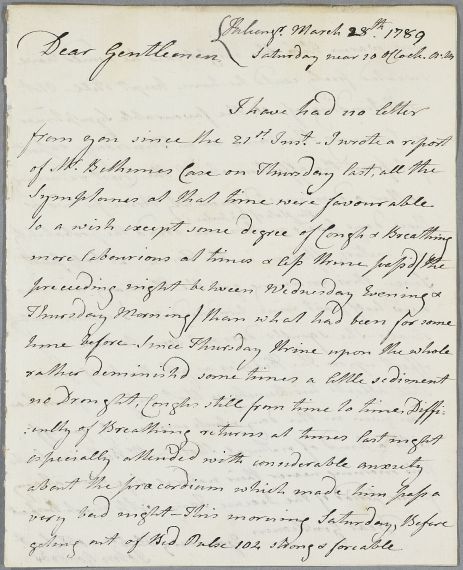 March 28th 1789
Dear Gentlemen Saturday near 10 O'Clock A.M
I have had no letter
from you since the 21st Inst. - I wrote a report
of Mr. Bethunes Case on Thursday last, all the
Symptomes at that time were favourable
to a wish except some degree of Cough & Breathing
more labourious at times & less Urine pass'd (the
preceeding night between Wednesday Evening &
Thursday Morning) than what had been for some
time before - Since Thursday Urine upon the whole
rather deminish'd some times a little sediment
no Drought, Coughs still from time to time, Diffi-
:culty of Breathing returns at times last night
especially attended with considerable anxiety
about the præcordium which made him pass a
very bad night - This morning Saturday, Before
getting out of Bed Pulse 102 strong & forceable